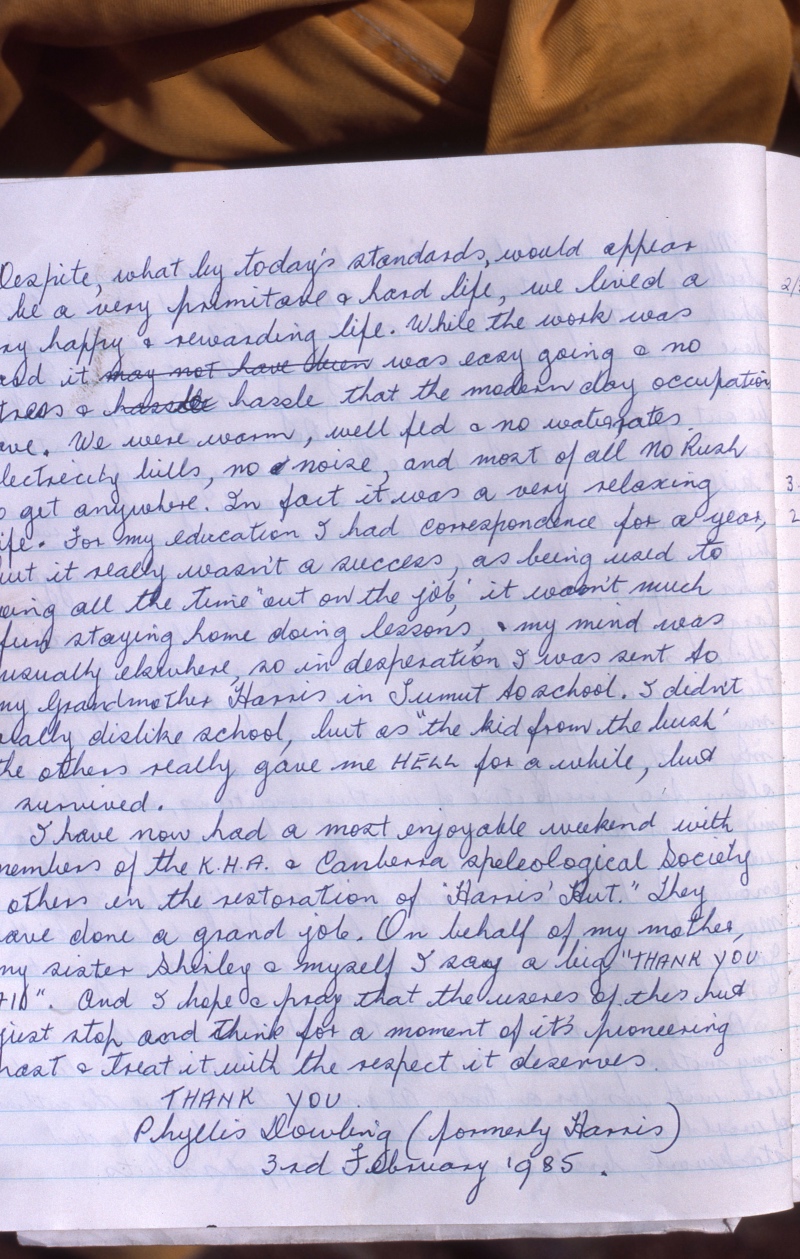 Despite, what by today's standards, would appear
be a very primitave & hard life, we lived a
ry happy & rewarding life. While the work was
it may not have been was easy going & no
tress & hassle hassle that the modern day occupation
ave. We were warm, well fed & no water rates
lectricity bills, no noise, and most of all NO Rush
o get anywhere. In fact it was a very relaxing
ife. For my education I had correspondence for a year,
but it really wasn't a success, as being used to
eing all the time "out on the job' it wasn't much
fun staying home doing lessons, my mind was
usually elsewhere, so in desperation I was sent to
my Grandmother Harris in Tumut to school. I didn't
eally dislike school, but as "the kid from the bush'
the others really gave me HELL for a while, but
survived.
I have now had a most enjoyable weekend with
members of the K.H.A. & Canberra Speleological Society
others in the restoration of 'Harris' Hut." They
ave done a grand job. On behalf of my mother,
my sister Shirley & myself I say a big "THANK YOU
". And I hope & pray that the useres of this hut
just stop and think for a moment of it's pioneering
past & treat it with the respect it deserves.
THANK YOU.
Phyllis Dowling (formerly Harris)
3rd February 1985.
2/
3.
2